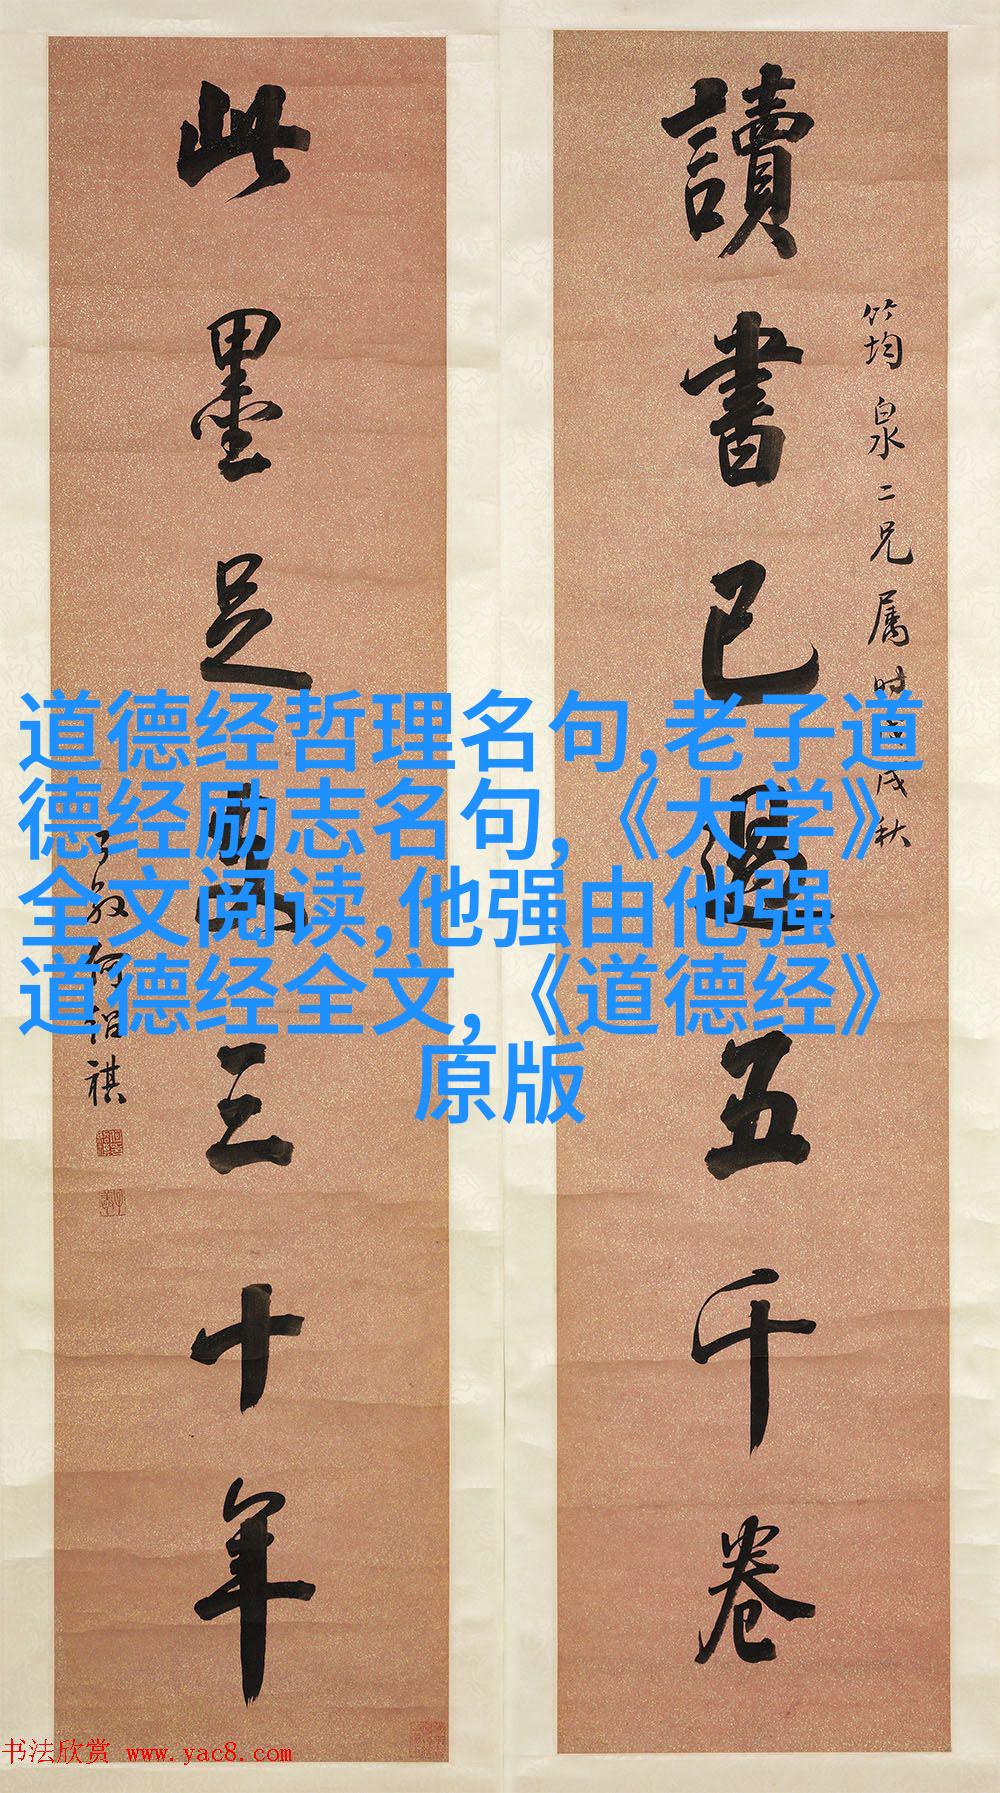 讀書已過五千卷
竹均泉二兄属时
秋
此墨足
三十年
祺
道德经哲理名句,老子道
德经励志名句,《大学》
全文阅读,他强由他强
道德经全文,《道德经》
原版
书法欣赏 www.yac8.com